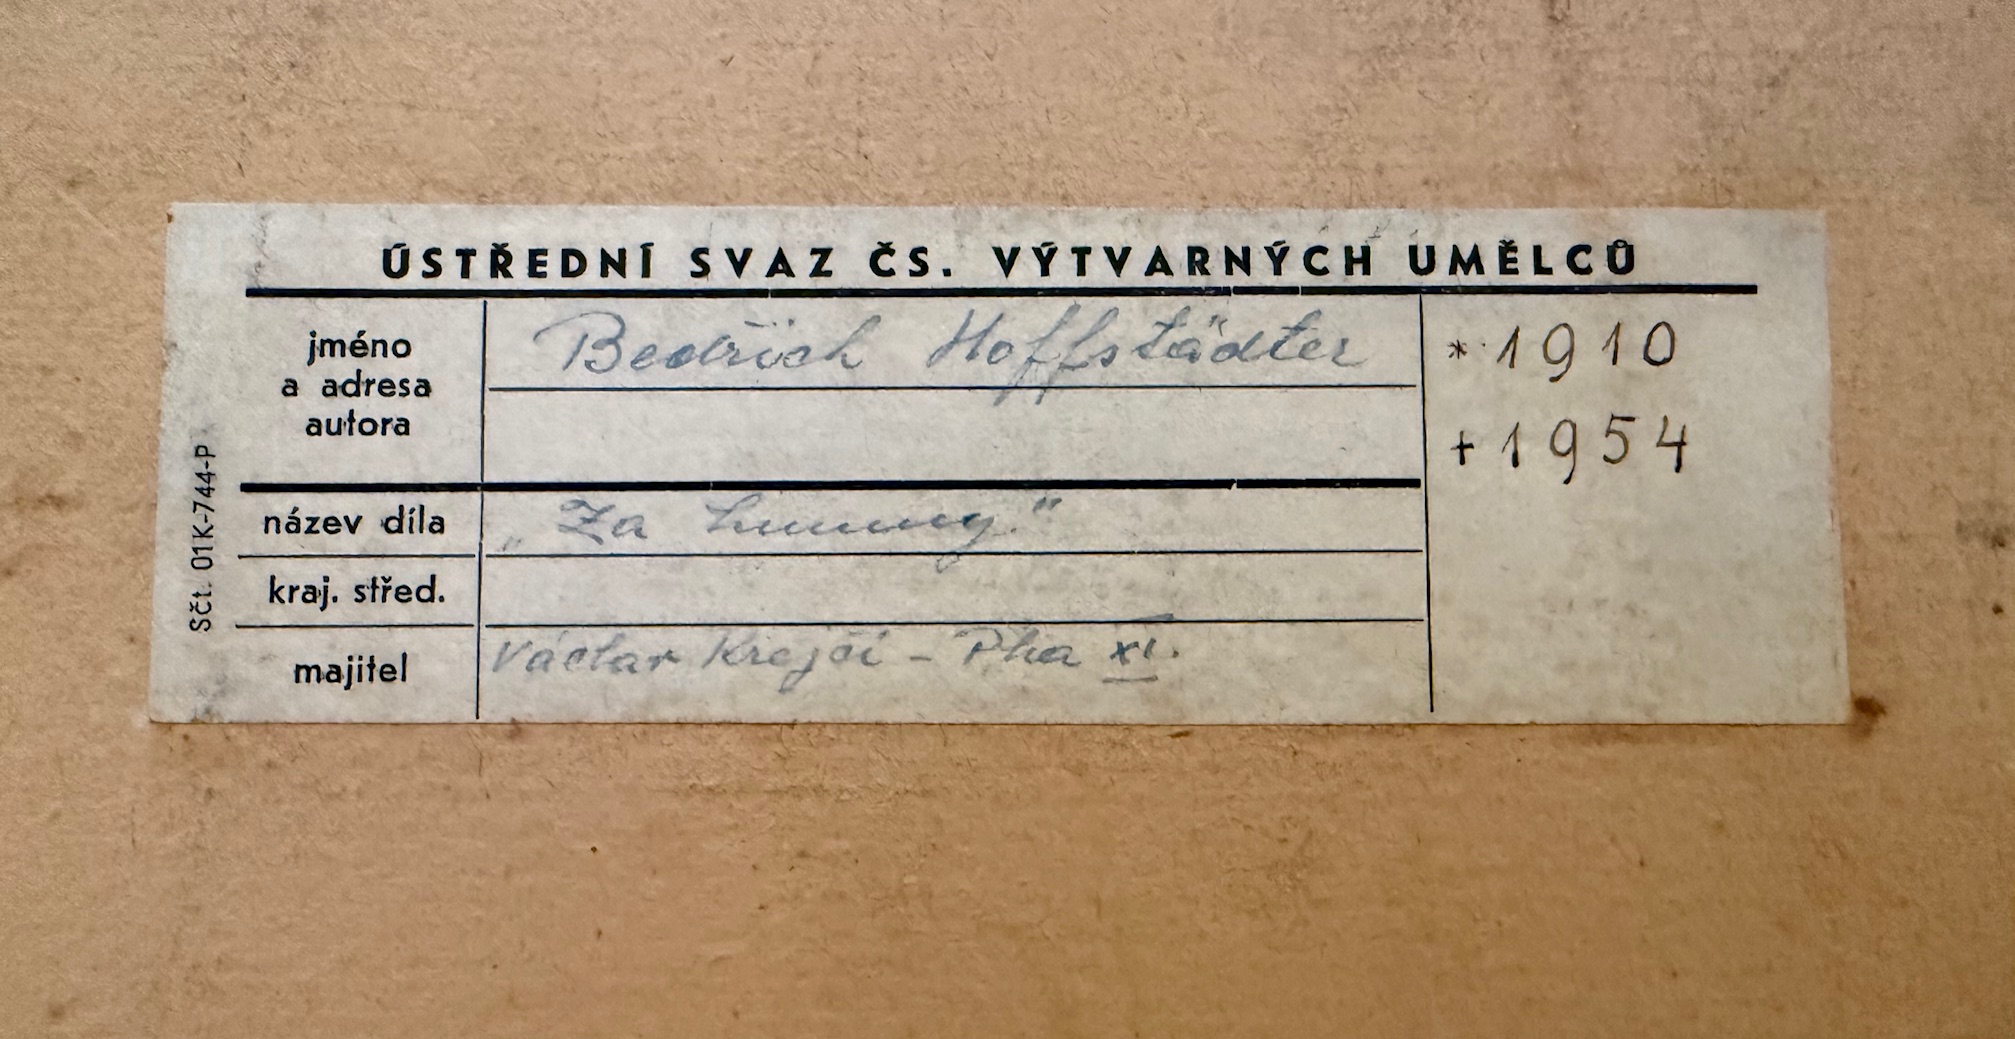 ÚSTŘEDNÍ SVAZ ČS. VÝTVARNÝCH UMĚLCŮ
jméno
a adresa
autora
Bedřich Hoffstädter
* 1910
+ 1954
název díla
„Za humny."
kraj. střed.
majitel
Václav Krejčí - Pha XI.
Sčt. 01K-744-P